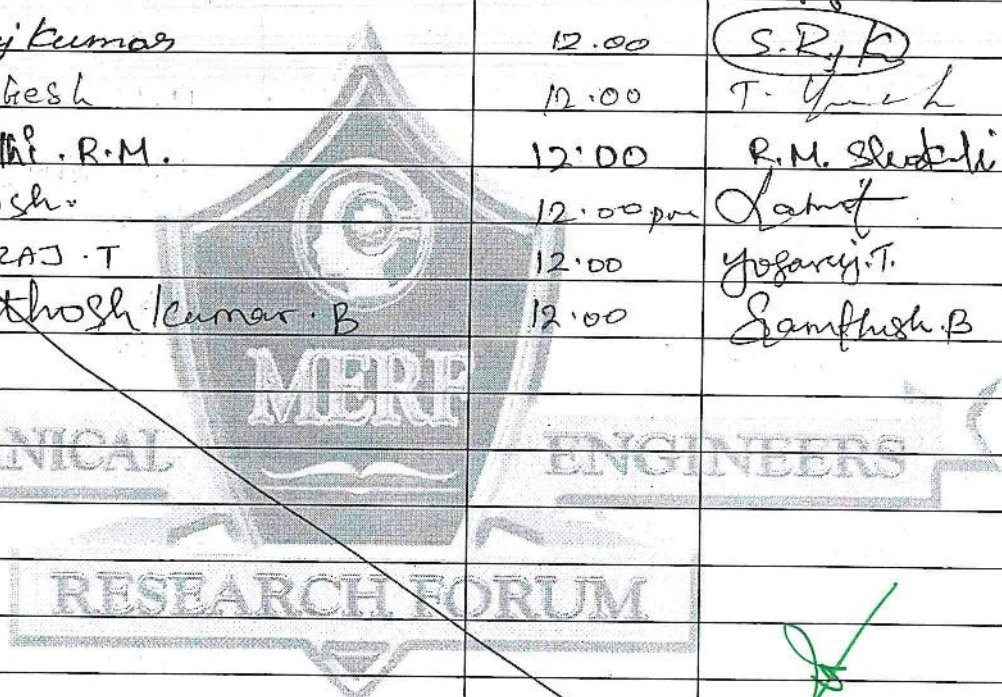 j Kumar 12.00 S.RjK
gesh 12.00 T.
thi . R.M. 12:00 R.M.
sh. 12.00 pm
RAJ . T 12:00 yogaraj.T.
thosh kumar . B 12:00 Santhosh.B
MERF
NICAL ENGINEERS
RESEARCH FORUM